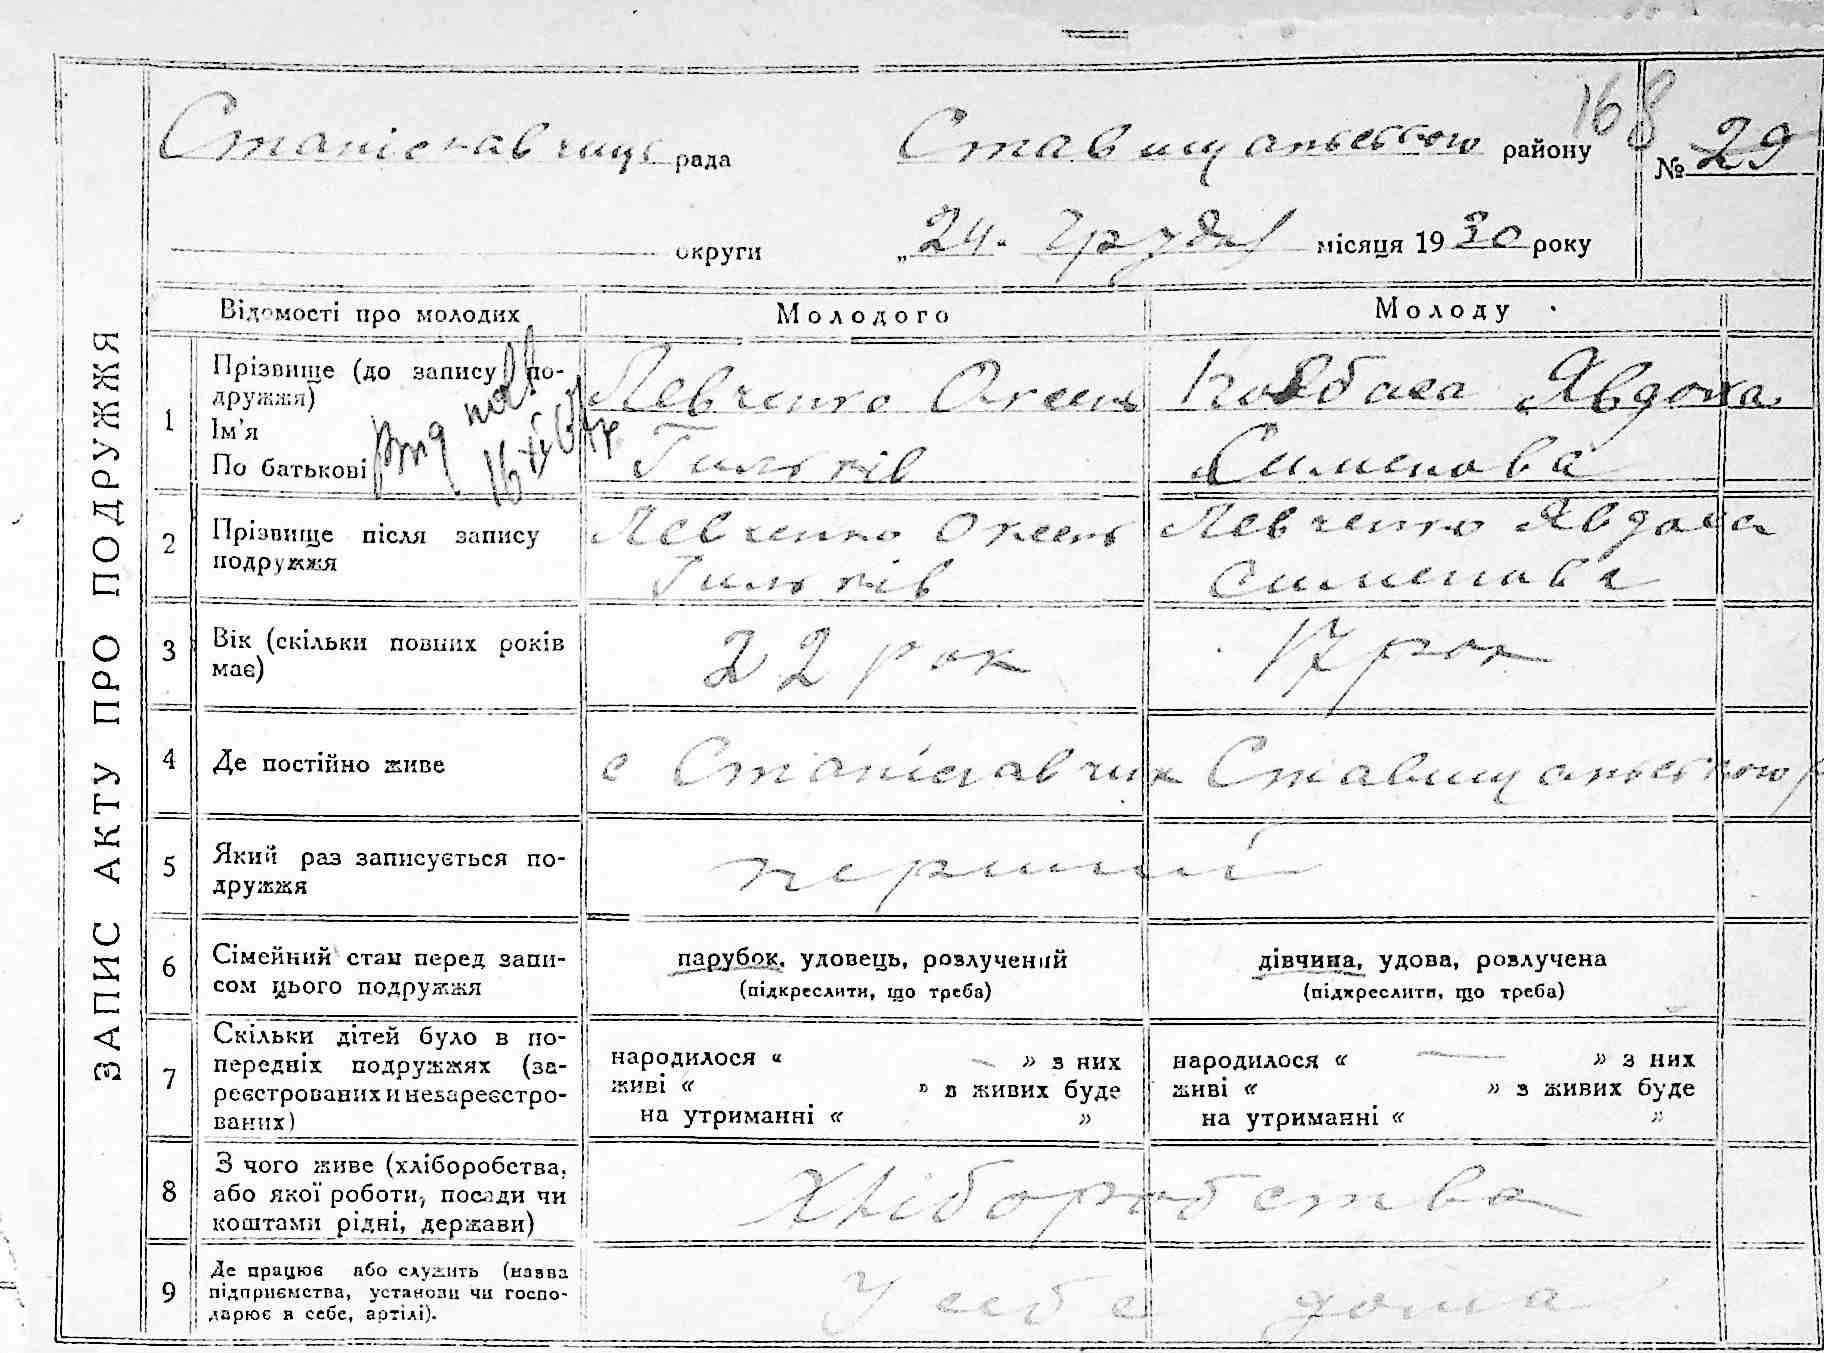 168
Станіславчиць рада Ставищанського району № 29
округи „24. Грудня місяця 1930 року
ЗАПИС АКТУ ПРО ПОДРУЖЖЯ
Відомості про молодих Молодого Молоду
1 Прізвище (до запису подружжя)
Ім'я
По батькові
Левченко Оксень
Гильків
Ковбаса Явдоха
Сименова
16 XII
2 Прізвище після запису
подружжя
Левченко Оксень
Гильків
Левченко Явдоха
Сименова
3 Вік (скільки повних років
має)
22 рок 17 рок
4 Де постійно живе с Станіславчик Ставищанського р
5 Який раз записується по-
дружжя
перший
6 Сімейний стан перед запи-
сом цього подружжя
парубок, удовець, розлучений
(підкреслити, що треба)
дівчина, удова, розлучена
(підкреслити, що треба)
7 Скільки дітей було в по-
передніх подружжях (за-
реєстрованих и незареєстро-
ваних)
народилося « — » з них
живі « » в живих буде
на утриманні « »
народилося « — » з них
живі « » з живих буде
на утриманні « »
8 З чого живе (хліборобства,
або якої роботи, посади чи
коштами рідні, держави)
Хліборобства
9 Де працює або служить (назва
підприємства, установи чи госпо-
дарює в себе, артілі).
У себе дома